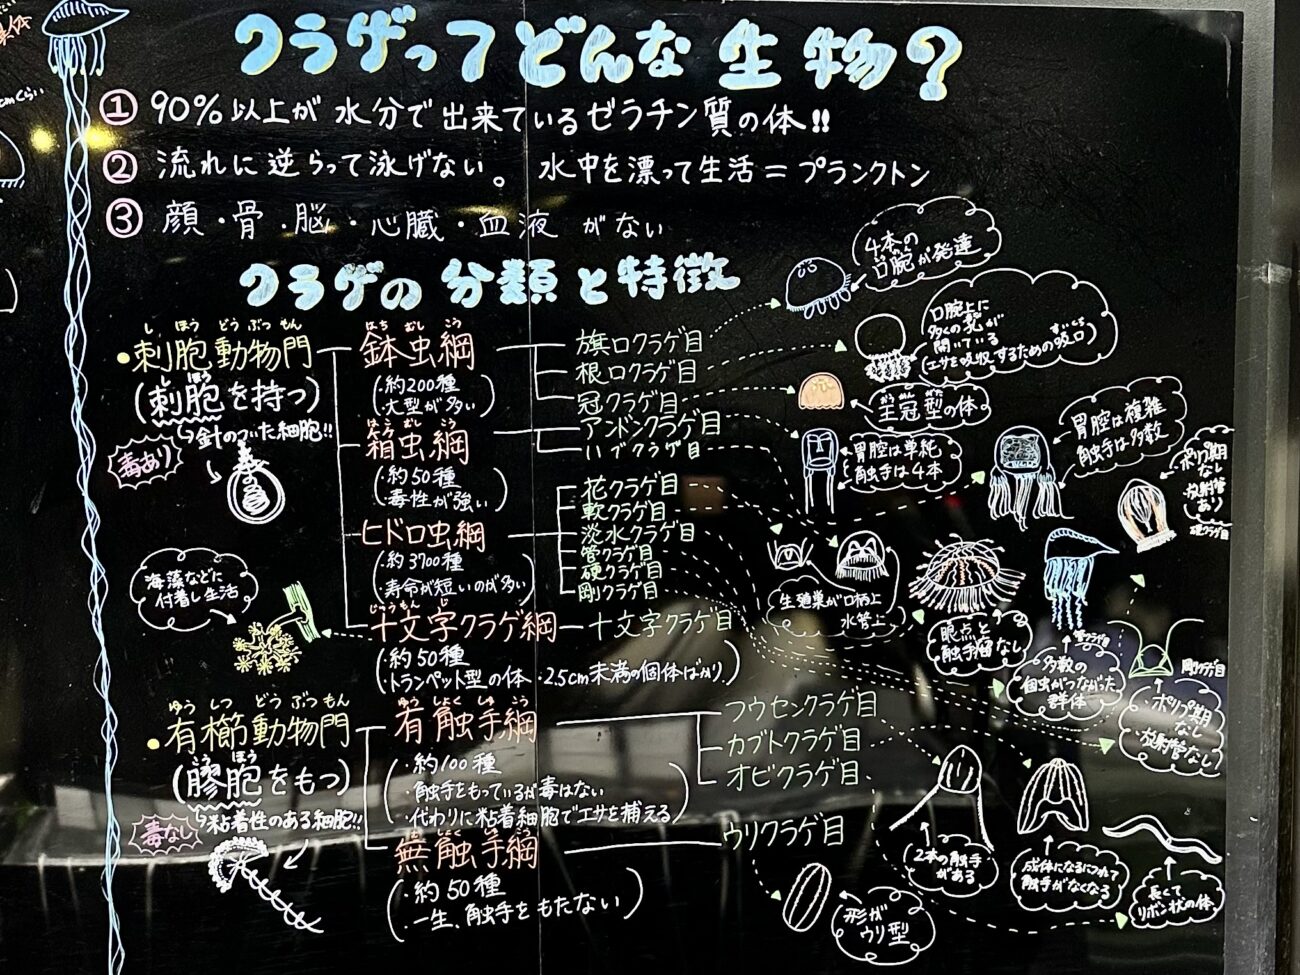 クラゲってどんな生物?
① 90%以上が水分で出来ているゼラチン質の体!!
② 流れに逆らって泳げない。 水中を漂って生活=プランクトン
③ 顔・骨・脳・心臓・血液 がない
クラゲの分類と特徴
し ほう どう ぶつ もん
・刺胞動物門
(刺胞を持つ)
し ほう
↳針のついた細胞!!
毒あり
はち むし こう
鉢虫綱
(・約200種
・大型が多い)
旗口クラゲ目
根口クラゲ目
冠クラゲ目
はこ むし こう
箱虫綱
(・約50種
・毒性が強い)
アンドンクラゲ目
いブクラゲ目
ヒドロ虫綱
(・約3700種
・寿命が短いのが多い)
花クラゲ目
軟クラゲ目
淡水クラゲ目
管クラゲ目
硬クラゲ目
剛クラゲ目
じゅうもん じ
十文字クラゲ綱
(・約50種
・トランペット型の体 ・2.5cm未満の個体ばかり)
十文字クラゲ目
海藻などに
付着し生活
ゆう しつ どう ぶつ もん
・有櫛動物門
(膠胞をもつ)
こう ほう
↳粘着性のある細胞!!
毒なし
ゆう しょく しゅ こう
有触手綱
(・約100種
・触手をもっているが毒はない
・代わりに粘着細胞でエサを捕える)
フウセンクラゲ目
カブトクラゲ目
オビクラゲ目
む しょく しゅ こう
無触手綱
(・約50種
・一生、触手をもたない)
ウリクラゲ目
4本の
口腕が発達
口腕上に
多くの
開いている
(エサを吸収するための吸口)
王冠型の体。
胃腔は単純
触手は4本
胃腔は複雑
触手は多数
ポリプ期
なし
放射管
あり
硬クラゲ目
生殖巣が口柄上
水管上
眼点と
触手瘤なし
管クラゲ目
多数の
個虫がつながった
群体
剛クラゲ目
・ポリプ期
なし
・放射管なし
2本の触手
がある
成体になるにつれて
触手がなくなる
長くて
リボン状の体
形が
ウリ型